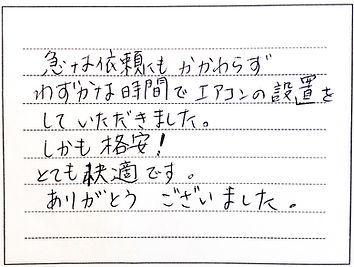 急な依頼にもかかわらず
わずかな時間でエアコンの設置を
していただきました。
しかも格安！
とても快適です。
ありがとうございました。